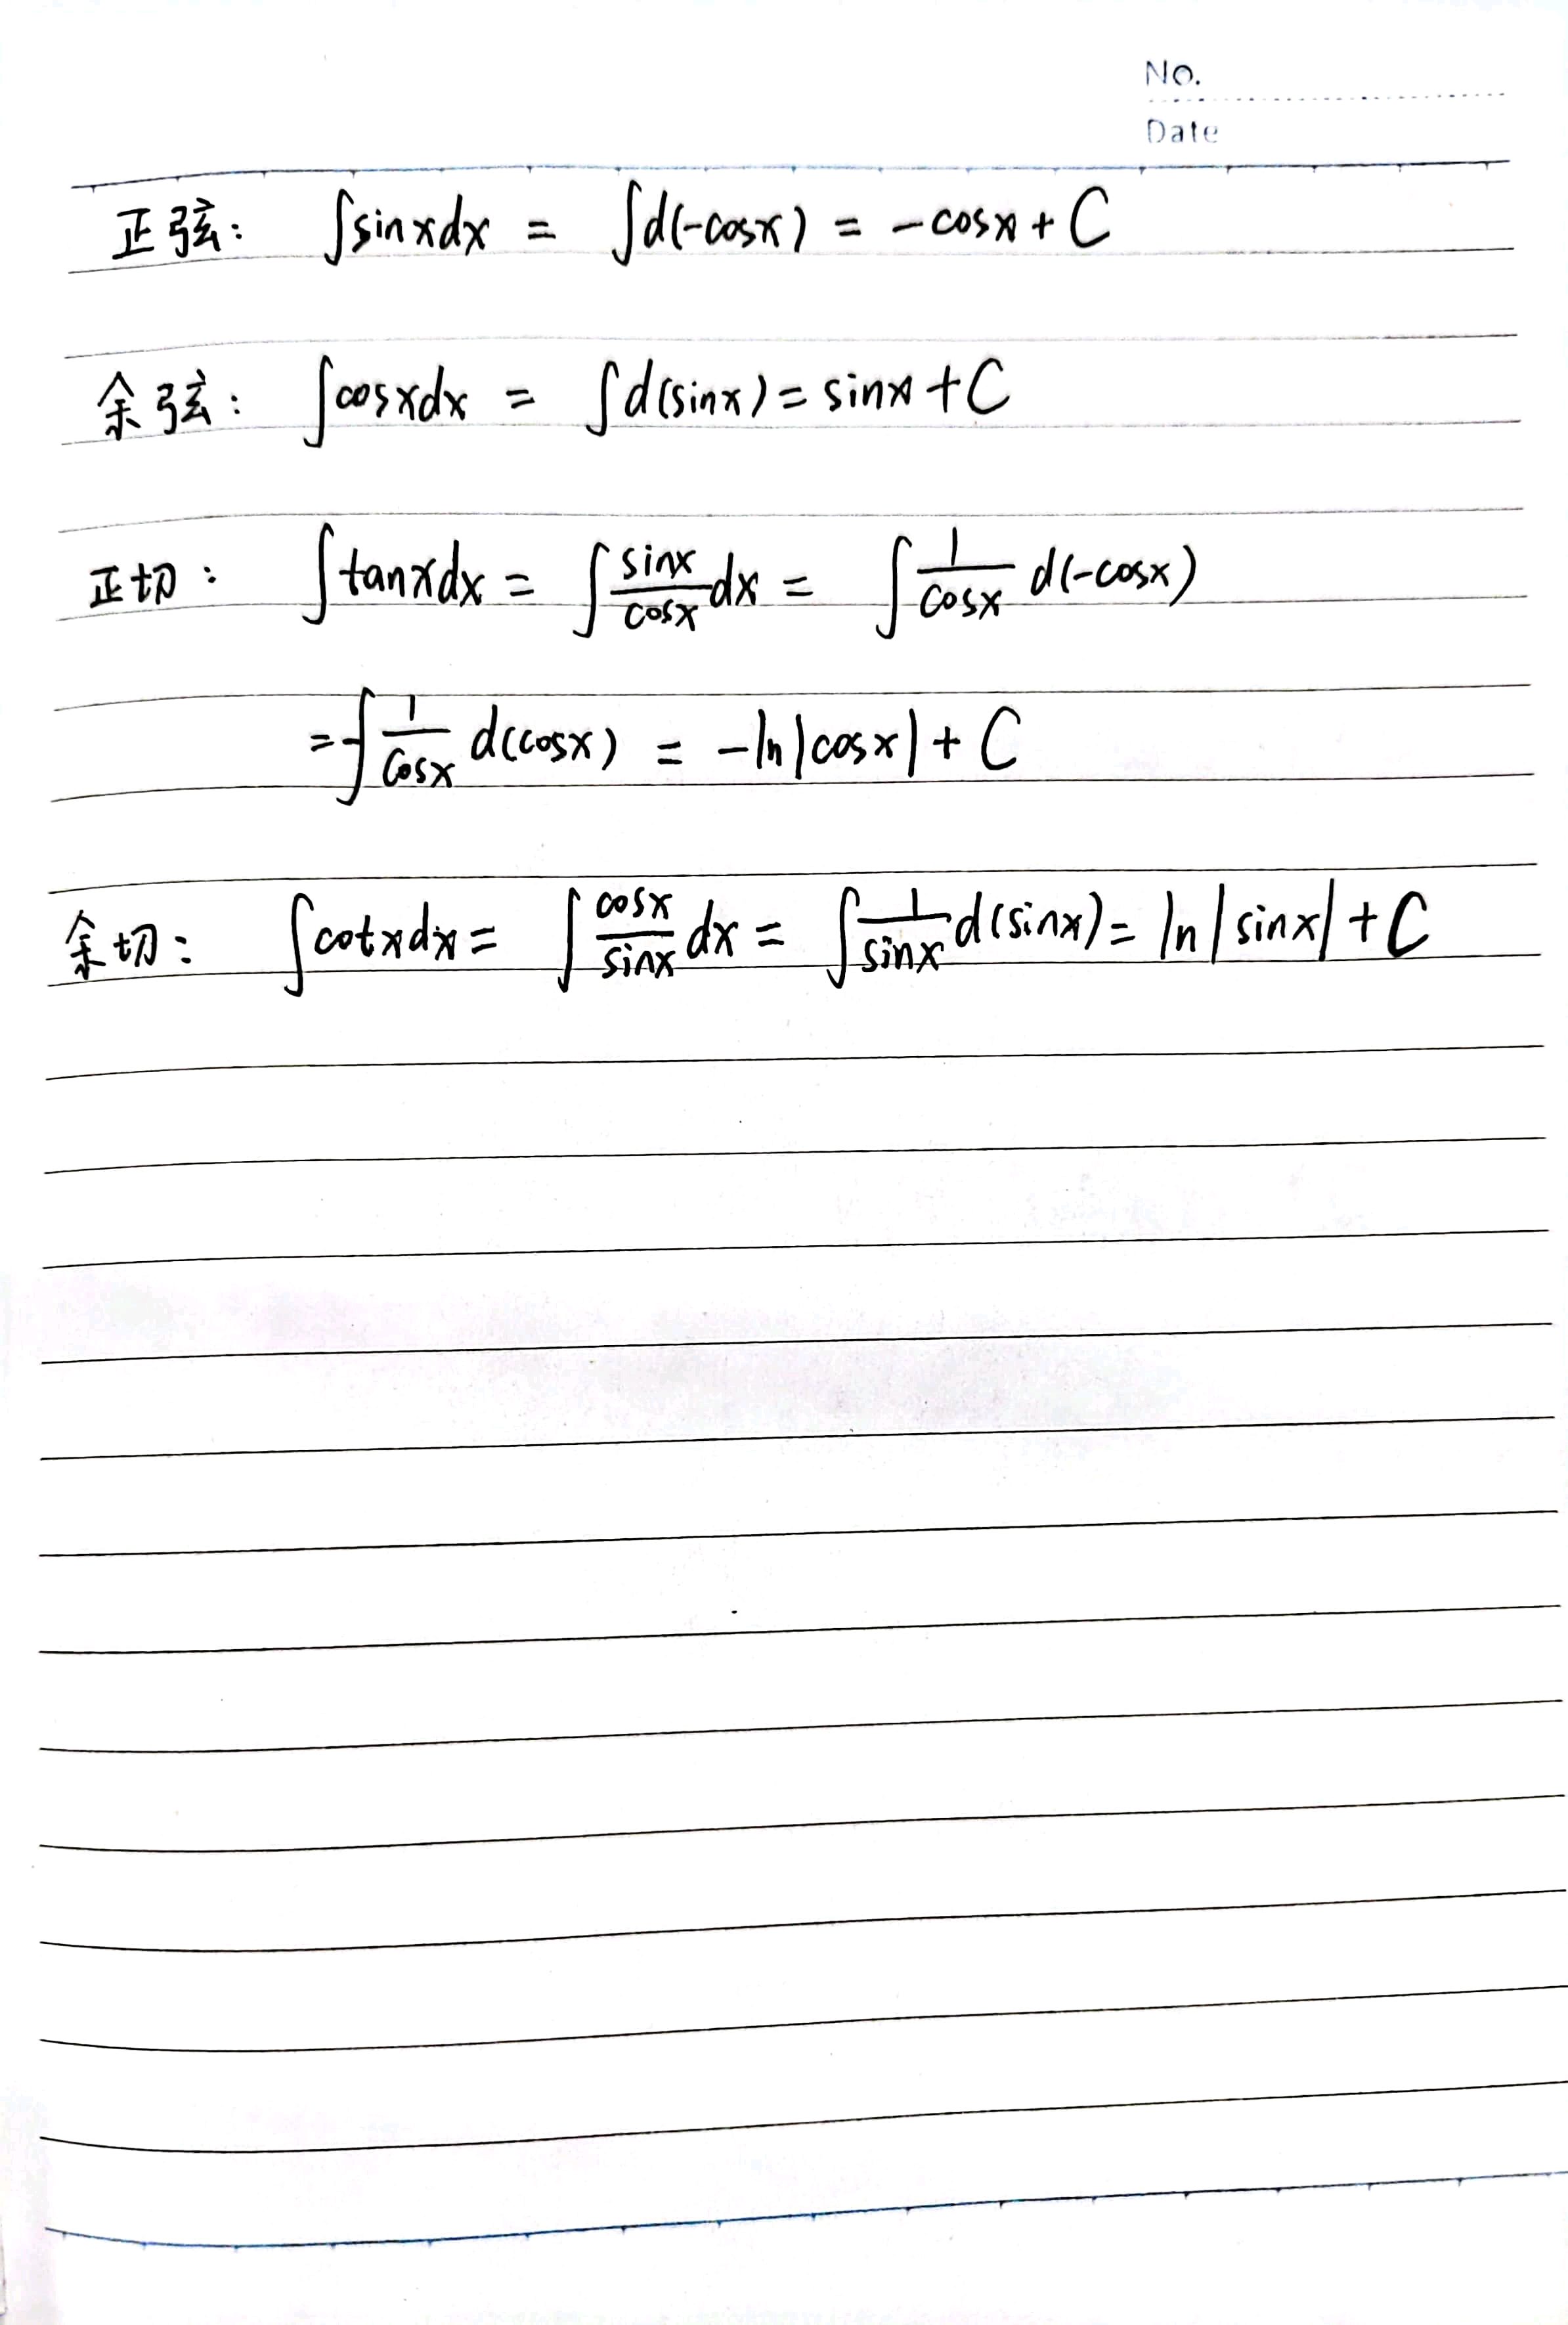 No.
Date
正弦: ∫sinxdx = ∫d(-cosx) = -cosx + C
余弦: ∫cosxdx = ∫d(sinx) = sinx + C
正切: ∫tanxdx = ∫\frac{sinx}{cosx}dx = ∫\frac{1}{cosx}d(-cosx)
= -∫\frac{1}{cosx}d(cosx) = -ln|cosx| + C
余切: ∫cotxdx = ∫\frac{cosx}{sinx}dx = ∫\frac{1}{sinx}d(sinx) = ln|sinx| + C